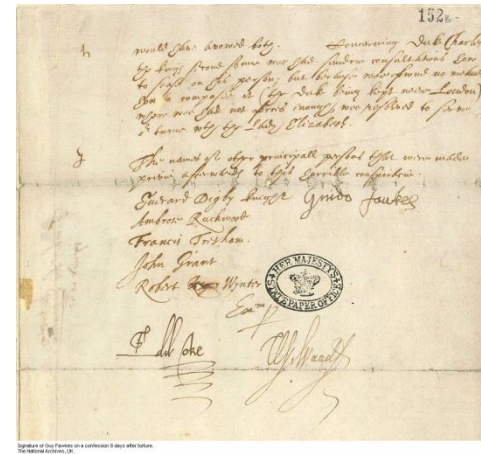 152
would have avowed both. Concerning Duk Charles
the kings second sonne wee had sundrie consultations how
to sease on his person, but because wee found no meanes
how to compasse it (the Duk being kept neer London)
where wee had not forces enough, wee resolved to serve
o'r turne with the Lady Elizabeth.
The names of other principall persons that were made
privie afterwards to this horrible conspiracie.
Everard Digby knight Guido Faukes
Ambrose Ruckwood
Francis Tresham
John Grant
Robert Wynter
HER MAJESTY'S STATE PAPER OFFICE
Edw Coke W Waad
Signature of Guy Fawkes on a confession 8 days after torture.
The National Archives, UK.